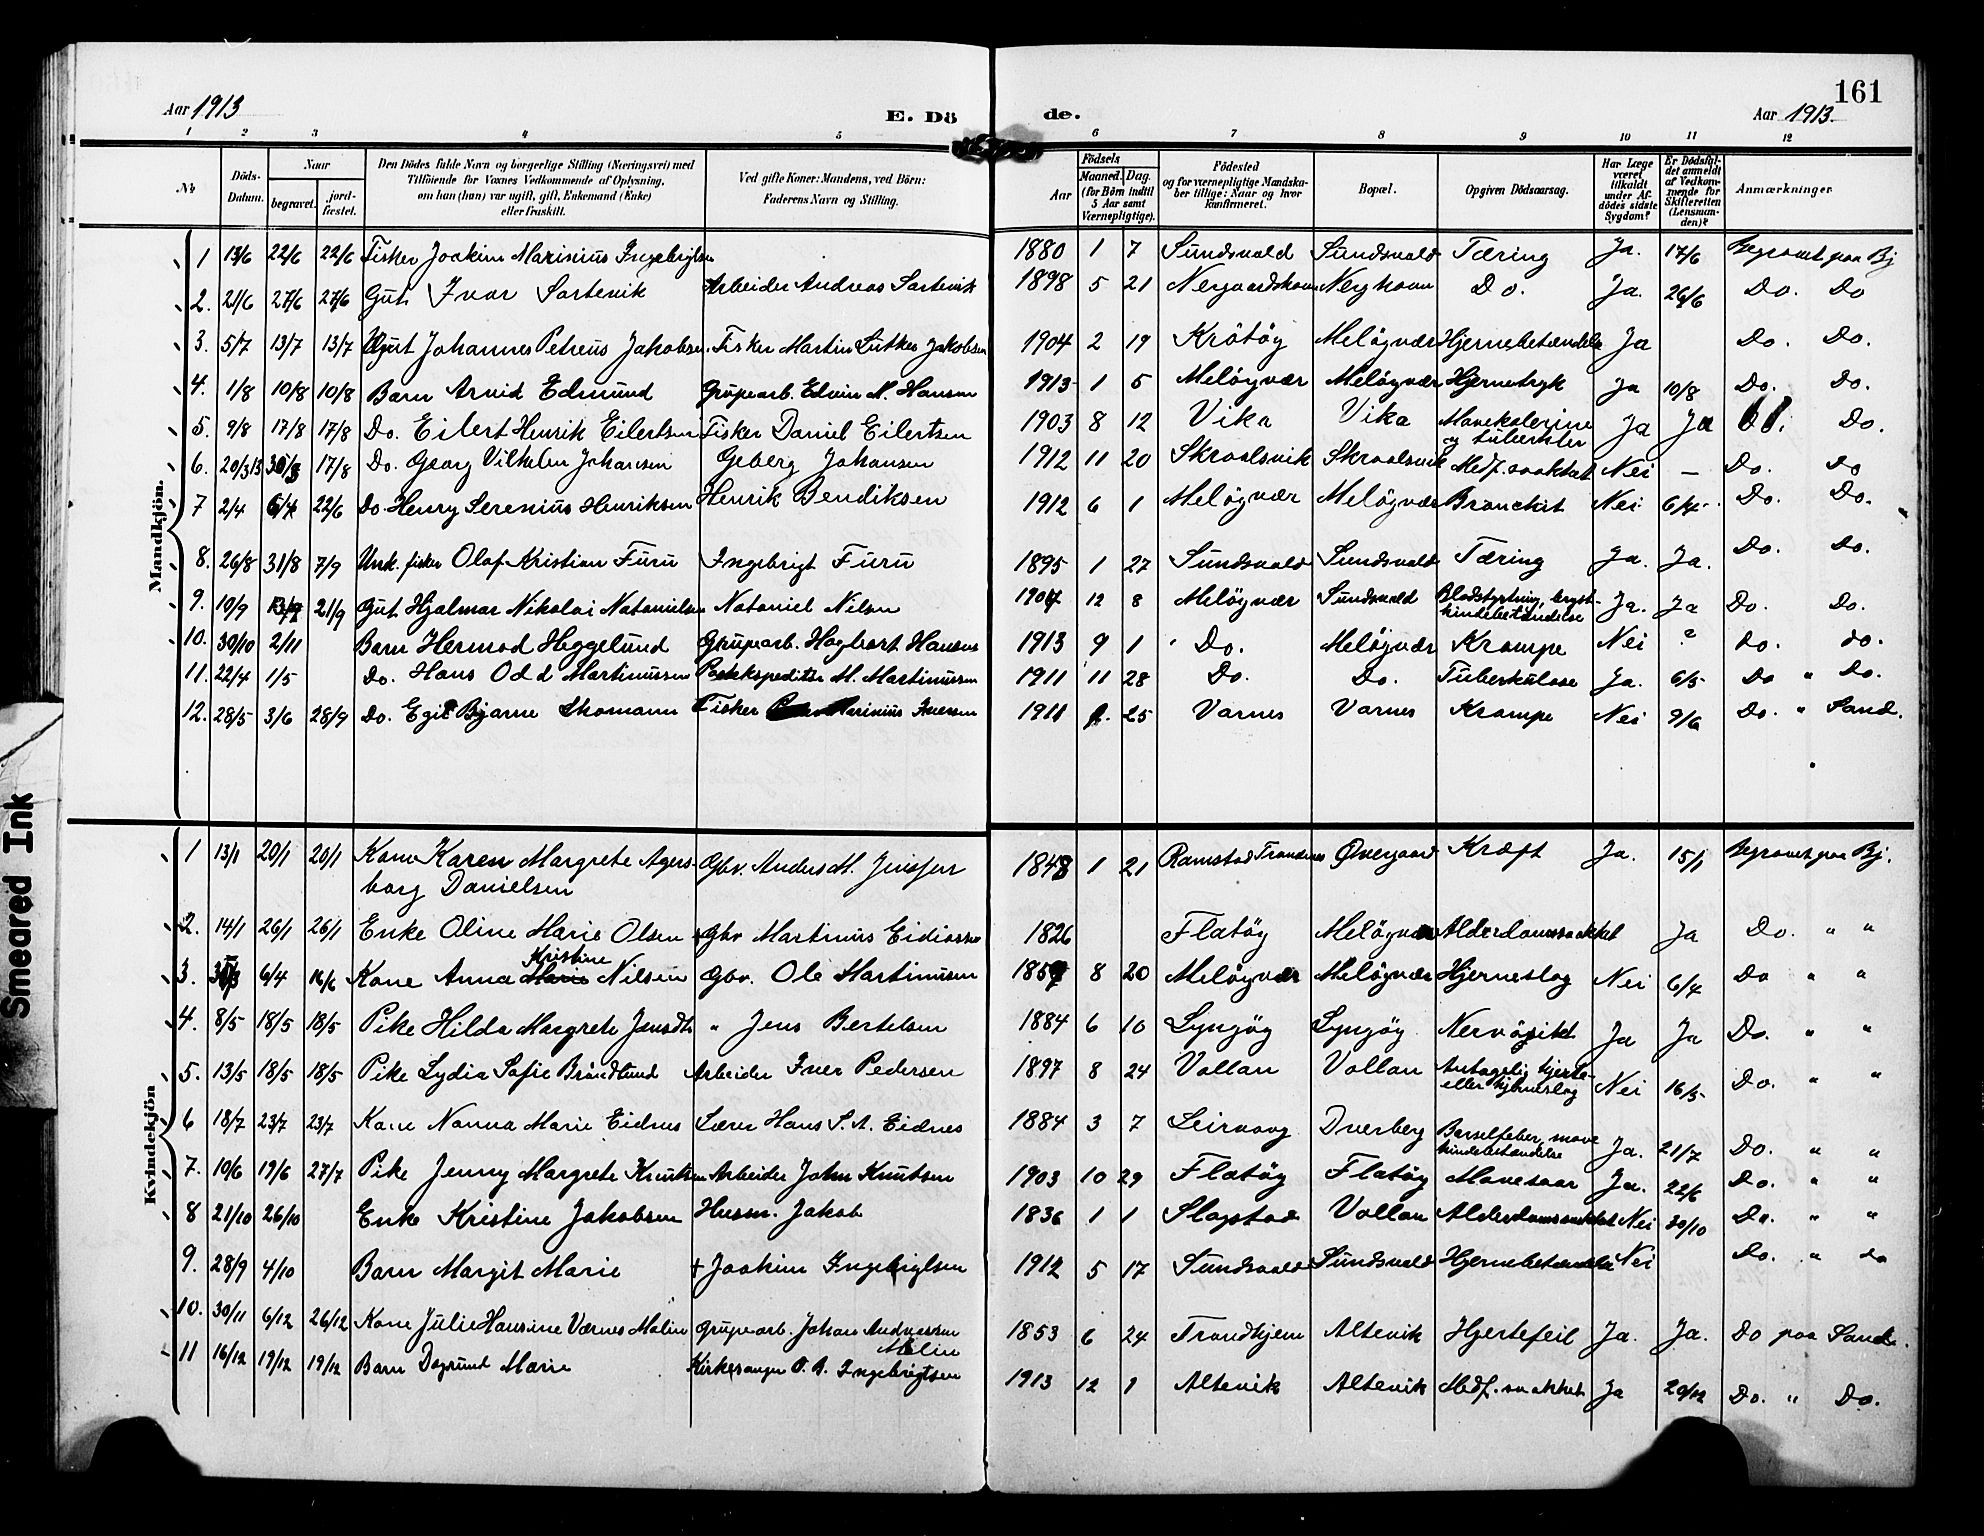 161
Aar 1913
E. Dö
de.
Aar 1913.
1 2 3 4 5 6 7 8 9 10 11 12
No
Döds-Datum.
Naar
begravet.
jord-fæstet.
Den Dödes fulde Navn og borgerlige Stilling (Næringsvei) med
Tilföiende for Voxnes Vedkommende af Oplysning,
om han (hun) var ugift, gift, Enkemand (Enke)
eller fraskilt.
Ved gifte Koner: Mandens, ved Börn:
Faderens Navn og Stilling.
Födsels
Aar
Maaned. Dag.
(for Börn indtil
5 Aar samt
Værnepligtige).
Födested
og for værnepligtige Mandska-
ber tillige: Naar og hvor
konfirmeret.
Bopæl.
Opgiven Dödsaarsag.
Har Læge
været
tilkaldt
under Af-
dödes sidste
Sygdom?
Er Dödsfal-
det anmeldt
af Vedkom-
mende for
Skifteretten
(Lensman-
den)?
Anmærkninger
Mandkjön.
1 13/6 22/6 22/6 Fisker Joakim Marinius Ingebrigtsen 1880 1 7 Sundsvald Sundsvald Tæring Ja. 17/6 Begravet paa Bj
2. 21/6 27/6 27/6 Gut Ivar Sortevik Arbeider Andreas Sortevik 1898 5 21 Do. Ja. 26/6 Do. Do
3. 5/7 13/7 13/7 Gut Johannes Petreus Jakobsen. Fisker Martin Luther Jakobsen 1904 2 19 Krötöy Melöyvær Hjernebetændelse Ja Do. Do.
4. 1/8 10/8 10/8 Barn Arvid Edmund Grupearb. Edvin M. Hansen 1913 1 5 Melöyvær Melöyvær Hjernetryk Ja 10/8 Do. Do.
5. 9/8 17/8 17/8 Do. Eilert Henrik Eilertsen Fisker Daniel Eilertsen 1903 8 12 Vika Vika Mavekolerine Ja Ja Do.
6. 20/3 13 17/8 Do. Georg Vilhelm Johansen Johansen 1912 11 20 Skrolsvik Skrolsvik Medf. svakhet Nei – Do. Do
7 2/4 6/4 22/6 Do. Henry Serenius Henriksen Henrik Bendiksen 1912 6 1 Melöyvær Melöyvær Bronchit Nei 6/4 Do. Do.
8. 26/8 31/8 7/9 Unk. fisker Olaf Kristian Furu Ingebrigt Furu 1895 1 27 Sundsvald Sundsvald Tæring Ja. Ja. Do. Do.
9. 10/9 21/9 Gut Hjalmar Nikolai Natanielsen Nataniel Nilsen 12 8 Melöyvær Sundsvald Blodstyrtning, bryst-
hindebetændelse Ja. Ja Do. Do.
10. 30/10 2/11 Barn Hermod Heggelund Grupearb. Hagbart Hansen 1913 9 1 Do. Melöyvær Krampe Nei ? do. do.
11. 22/4 1/5 Do. Hans Odd Martinussen Postekspeditör M. Martinussen 1911 11 28 Do. Do. Tuberkulose Ja. 6/5 Do " Do.
12. 28/5 3/6 28/9 Do. Egil Bjarne Skomann Fisker Marinius Iversen 1911 25 Varnes Varnes Krampe Nei 9/6 Do. " Sand.
Kvindekjön
1 13/1 20/1 20/1 Kone Karen Margrete Agers-
borg Danielsen Gbr. Anders M. 1848 1 21 Ramstad Trondenes Övergaard Kræft Ja. 15/1 Begravet paa Bj.
2. 14/1 26/1 26/1 Enke Oline Marie Olsen Gbr Martinus 1826 Flatöy Melöyvær Alderdomssvakhet Ja Do. " "
3. 6/4 16/6 Kone Anna Kristine Nilsen Gbr. Ole Martinussen 8 20 Melöyvær Melöyvær Hjerneslag Nei 6/4 Do " "
4. 8/5 18/5 18/5 Pike Hilda Margrete Jensdt. " Jens Bertelsen 1884 6 10 Lyngöy Lyngöy Ja Ja Do. " "
5. 13/5 18/5 18/5 Pike Lydia Sofie Bröndlund Arbeider Iver Pedersen 1897 8 24 Vollan Vollan Antagelig hjerte-
eller hjerneslag Nei 16/5 Do. " "
6 18/7 23/7 23/7 Kone Nanna Marie Eidnes Lærer Hans S. A. Eidnes 1884 3 7 Leirvaag Dverberg Barselfeber, mave
hindebetændelse Ja. 21/7 Do. " "
7. 10/6 19/6 27/7 Pike Jenny Margrete Knutsen Arbeider John Knutsen 1903 10 29 Flatöy Flatöy Mavesaar Ja. 22/6 Do. " "
8 21/10 26/10 Enke Kristine Jakobsen Husm. Jakob 1836 1 1 Slagstad Vollan Alderdomssvakhet Nei 30/10 Do. " "
9. 28/9 4/10 Barn Margit Marie + Joakim Ingebrigtsen 1912 5 17 Sundsvald Sundsvald Hjernebetændelse Nei Do. " do
10. 30/11 6/12 26/12 Kone Julie Hansine Værnes Molin Grupearb. Johan Andreassen
Molin 1853 6 24 Trondhjem Altevik Hjertefeil Ja. Ja. Do paa Sand.
11 16/12 19/12 19/12 Barn Dagrund Marie Kirkesanger O. A. Ingebrigtsen 1913 12 1 Altevik Altevik Medf. svakhet Ja 20/12 Do. " Do.
Smeared Ink